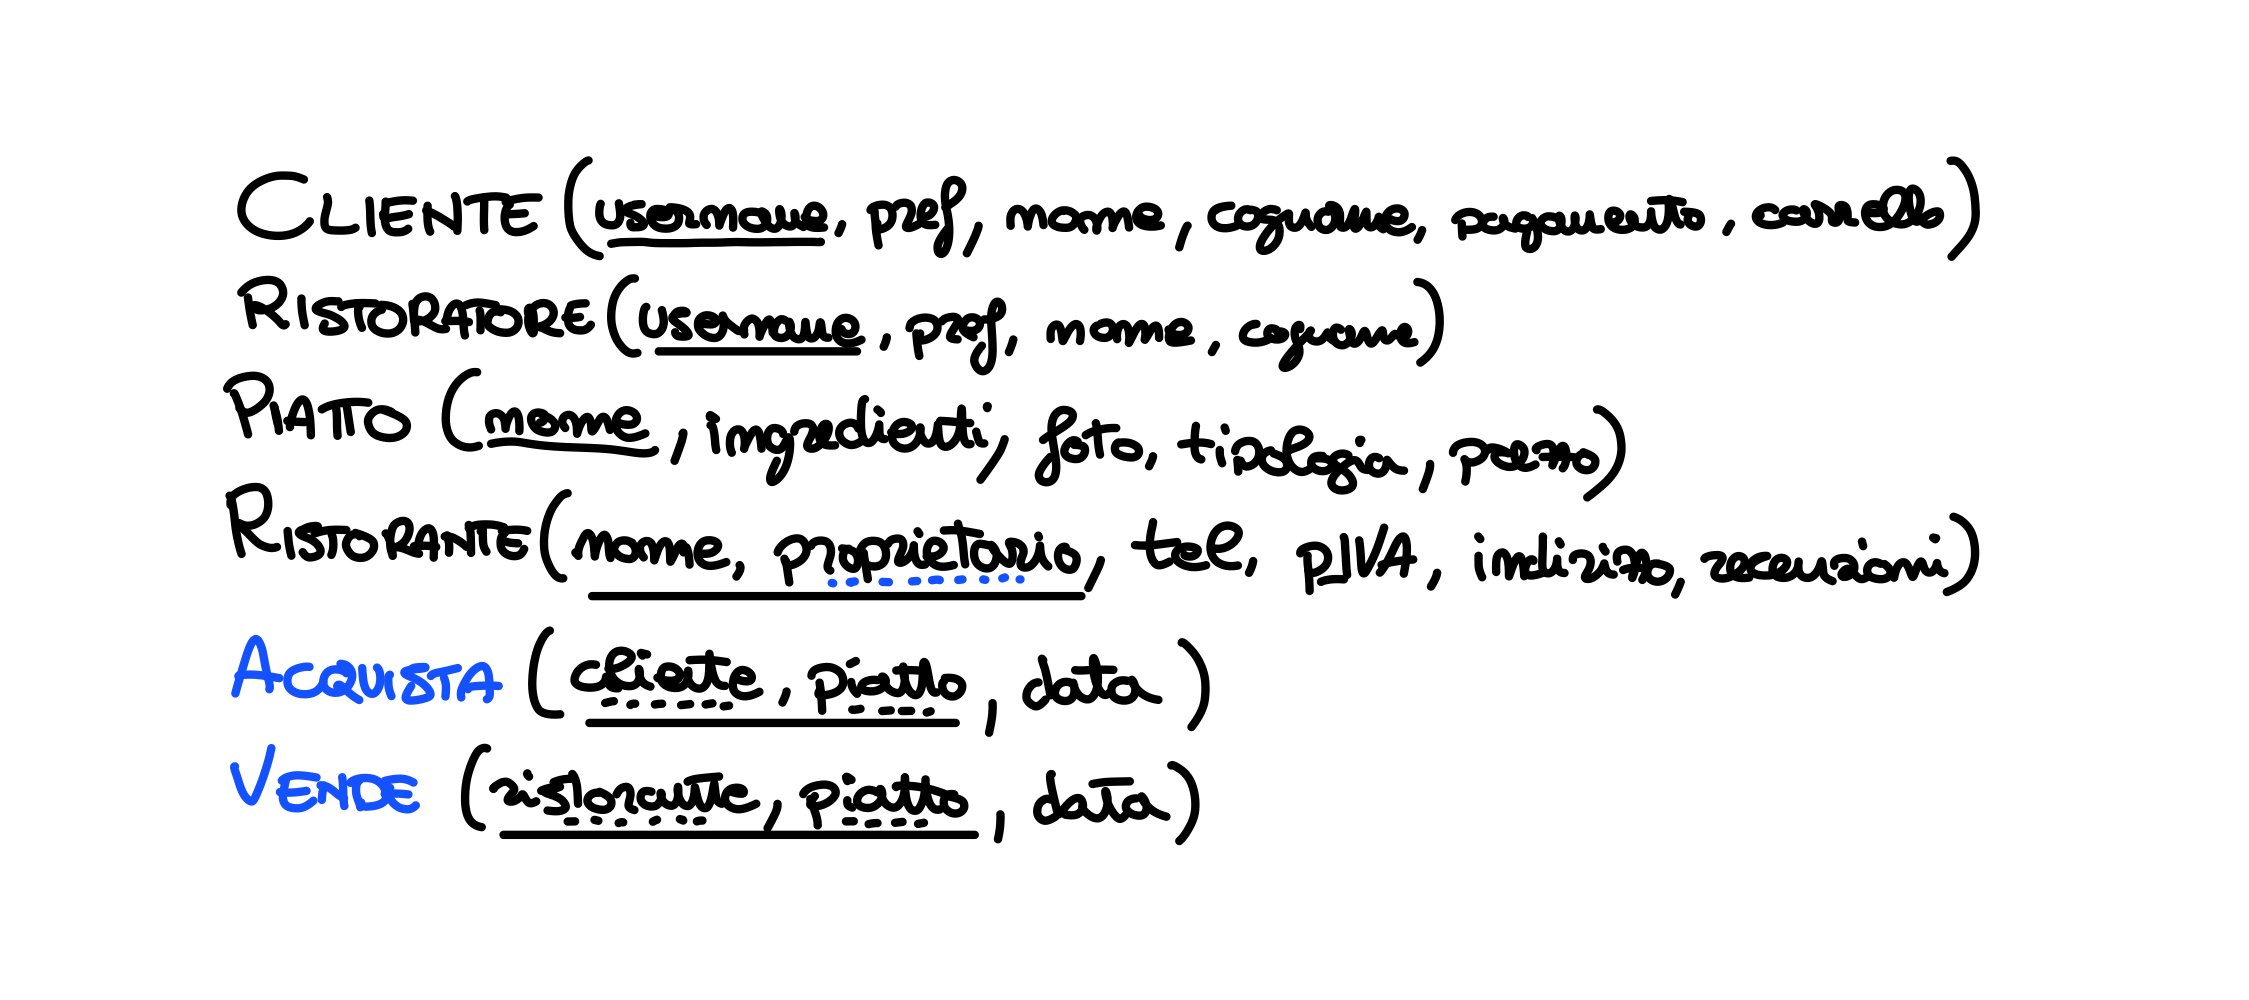 CLIENTE (username, pref, nome, cognome, pagamento, carrello)
RISTORATORE (username, pref, nome, cognome)
PIATTO (nome, ingredienti, foto, tipologia, prezzo)
RISTORANTE (nome, proprietario, tel, pIVA, indirizzo, recensioni)
ACQUISTA (cliente, piatto, data)
VENDE (ristorante, piatto, data)